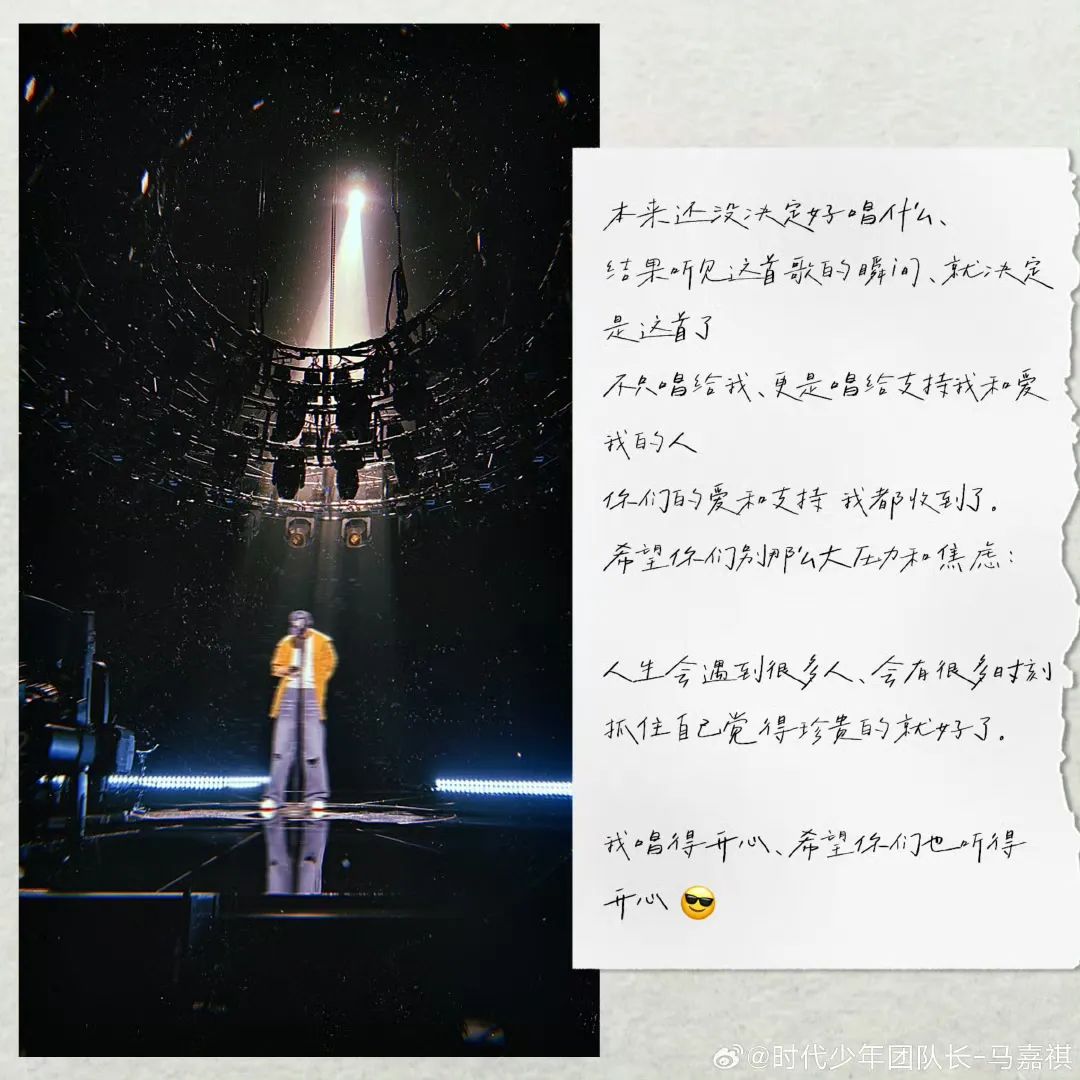 本来还没决定好唱什么、
结果听见这首歌的瞬间、就决定
是这首了
不只唱给我、更是唱给支持我和爱
我的人
你们的爱和支持 我都收到了。
希望你们别那么大压力和焦虑：
人生会遇到很多人、会有很多时刻
抓住自己觉得珍贵的就好了。
我唱得开心、希望你们也听得
开心 😎
@时代少年团队长-马嘉祺